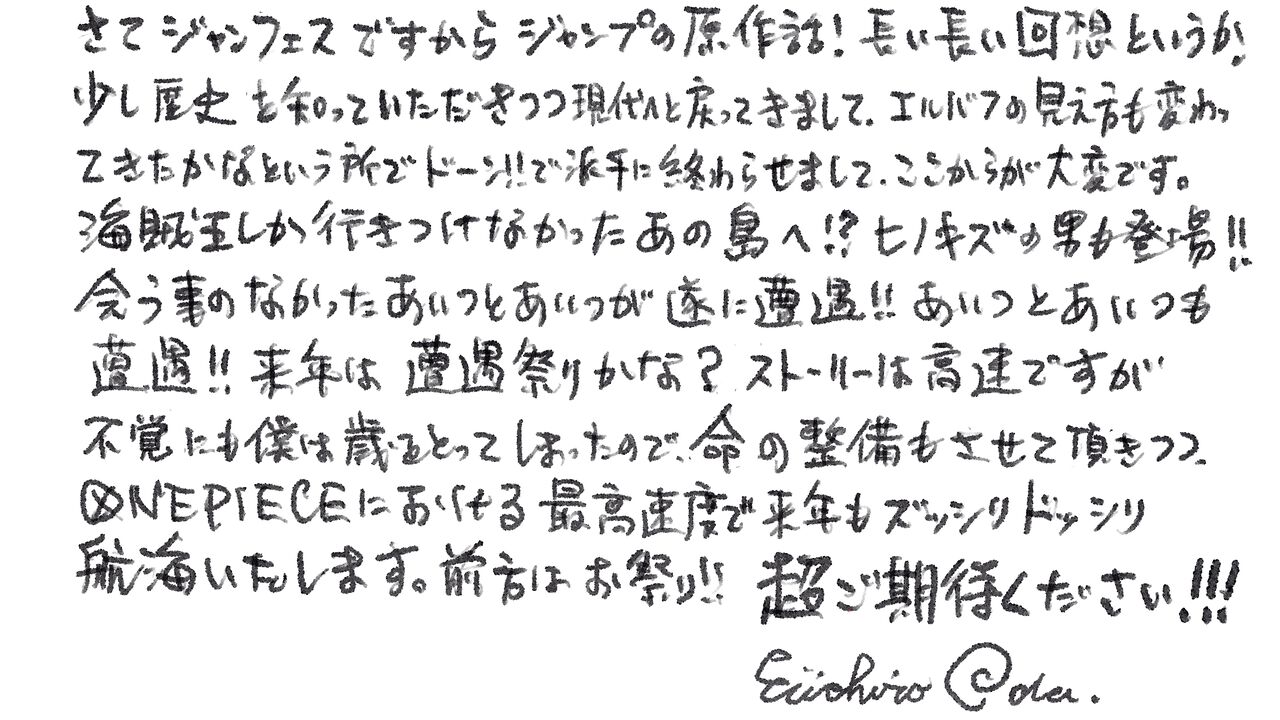 さてジャンフェスですからジャンプの原作話！長い長い回想というか、
少し歴史を知っていただきつつ現代へと戻ってきまして、エルバフの見え方も変わっ
てきたかなという所でドーン!!で派手に終わらせまして、ここからが大変です。
海賊王しか行きつけなかったあの島へ!?ヒノキズの男も登場!!
会う事のなかったあいつとあいつが遂に遭遇!!あいつとあいつも
遭遇!!来年は遭遇祭りかな？ストーリーは高速ですが
不覚にも僕は歳をとってしまったので、命の整備もさせて頂きつつ、
ONEPIECEにおける最高速度で来年もズッシリドッシリ
航海いたします。前方はお祭り!!超ご期待ください!!!
Eiichiro Oda.